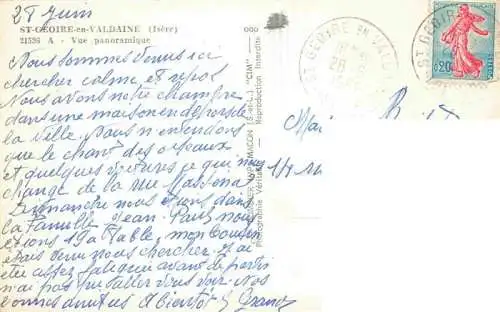 28 Juin
ST-GEOIRE-en-VALDAINE (Isère)
21526 A - Vue panoramique
Nous sommes venus ici
chercher calme et repos
Nous avons notre chambre
dans une maison en dehors de
la ville. Nous n'entendons
que le chant des oiseaux
et quelques voitures ce qui nous
change de la rue Massena
Dimanche nous étions dans
la Famille Jean-Paul nous
étions 19 a Table, mon Cousin
était venu nous chercher. J'ai
été assez fatiguée avant de partir
n'ai pas pu aller vous voir. Nos
bonnes amitiés A Bientôt
MACON (S.-&-L.) "CIM"
Photographie Véritable - Reproduction Interdite
ST GEOIRE EN VALD
18
28
ST GEOIRE
0,20